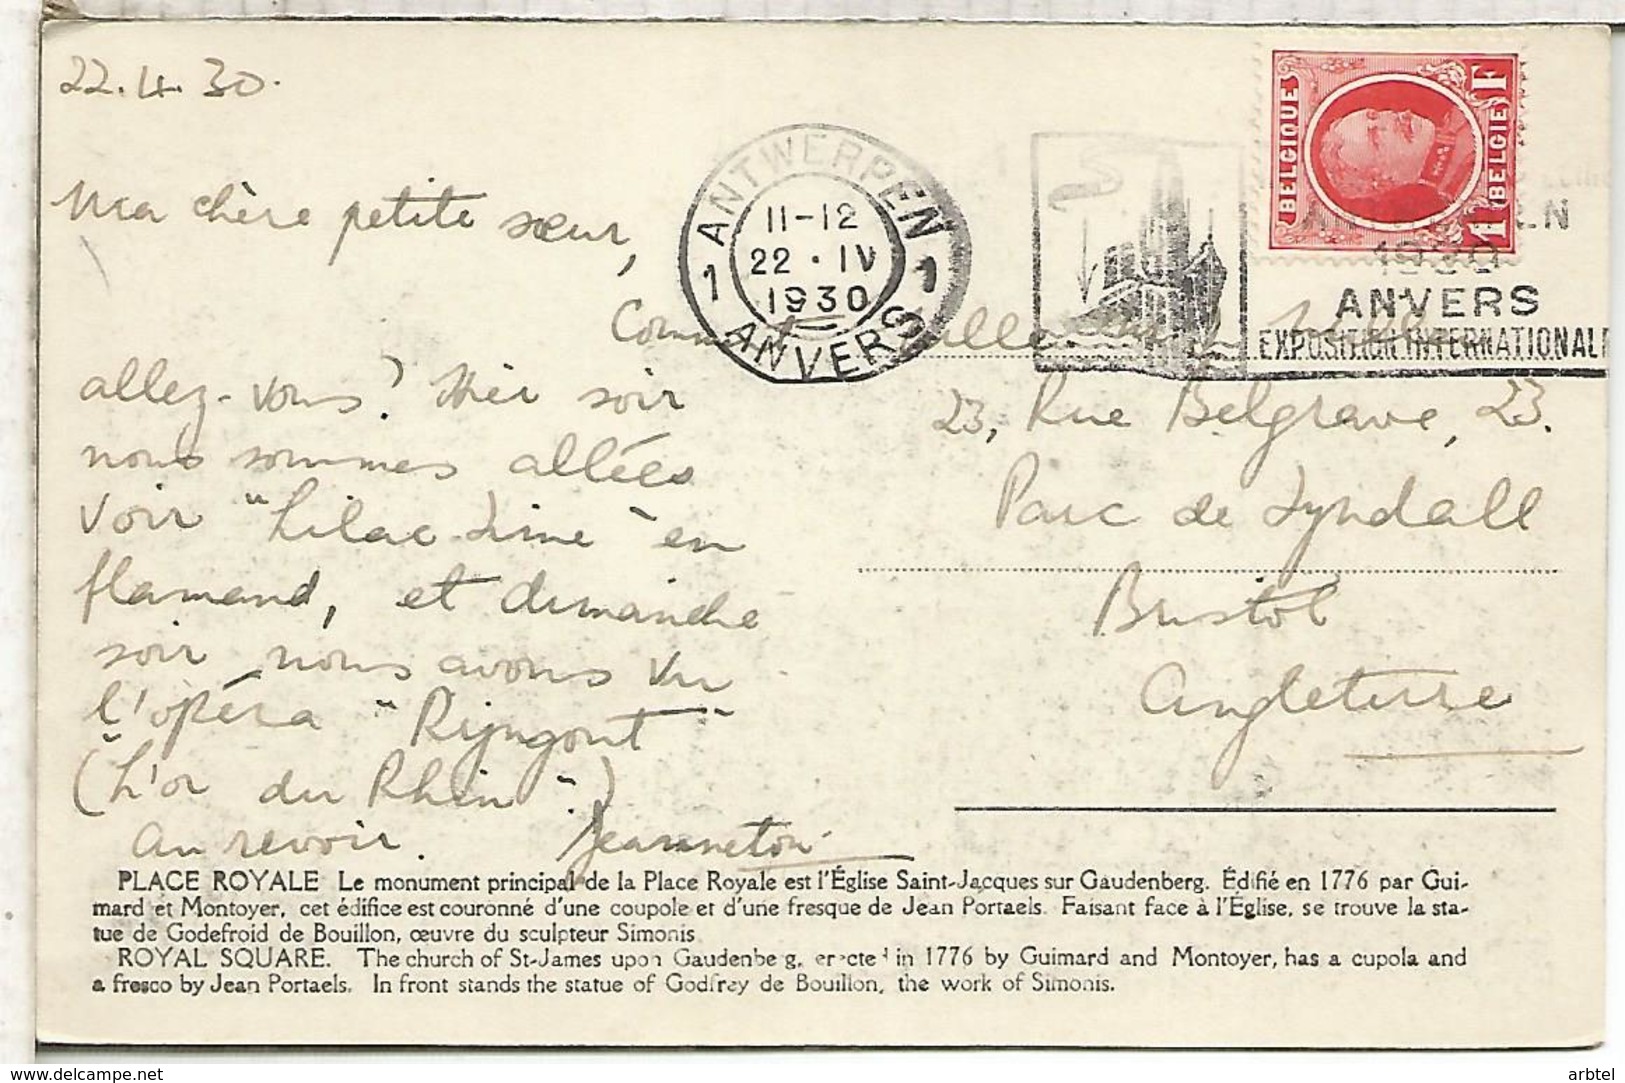 22.4.30.
Ma chère petite sœur,
Comment
allez-vous? Hier soir
nous sommes allées
voir "Lilac Time" en
flamand, et dimanche
soir nous avons vu
l'opéra "Rijngout"
("L'or du Rhin".)
Au revoir. Jeanneton.
ANTWERPEN
11-12
22 · IV
1930
1 1
ANVERS
BELGIQUE
1 F
BELGIE
EN
1930
ANVERS
EXPOSITION INTERNATIONALE
23, Rue Belgrave, 23.
Parc de Tyndall
Bristol
Angleterre
PLACE ROYALE Le monument principal de la Place Royale est l'Église Saint-Jacques sur Gaudenberg. Édifié en 1776 par Gui-
mard et Montoyer, cet édifice est couronné d'une coupole et d'une fresque de Jean Portaels. Faisant face à l'Église, se trouve la sta-
tue de Godefroid de Bouillon, œuvre du sculpteur Simonis
ROYAL SQUARE. The church of St-James upon Gaudenberg, erected in 1776 by Guimard and Montoyer, has a cupola and
a fresco by Jean Portaels. In front stands the statue of Godfrey de Bouillon, the work of Simonis.
www.delcampe.net
arbtel